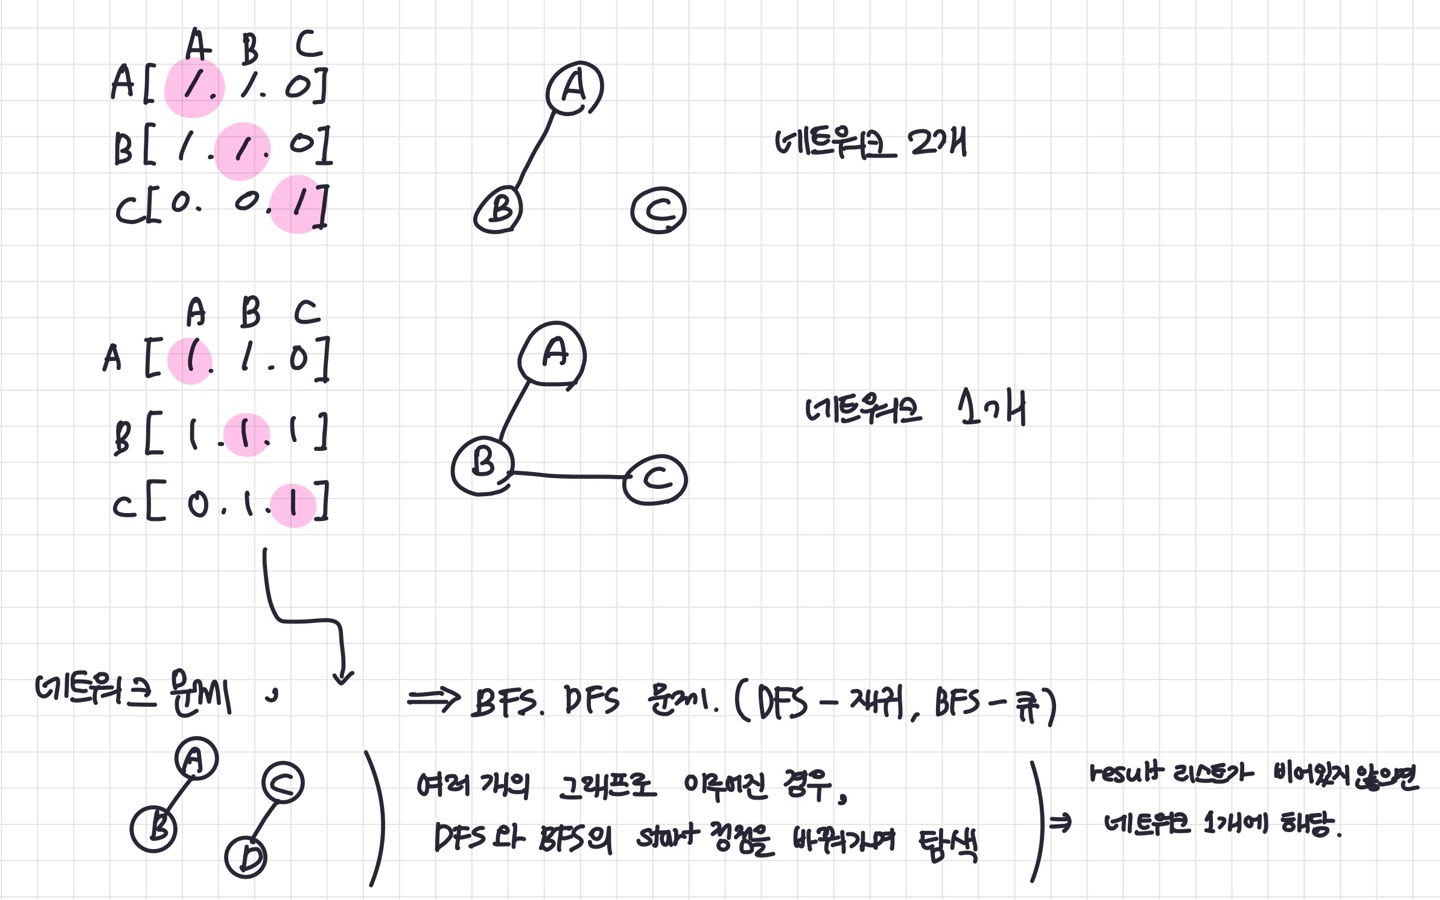 A B C
A [ 1. 1. 0 ]
B [ 1. 1. 0 ]
C [ 0. 0. 1 ]
A
B
C
네트워크 2개
A B C
A [ 1. 1. 0 ]
B [ 1. 1. 1 ]
C [ 0. 1. 1 ]
A
B
C
네트워크 1개
네트워크 문제, ⇒ BFS. DFS 문제. (DFS - 재귀, BFS - 큐)
A
B
C
D
여러 개의 그래프로 이루어진 경우,
DFS와 BFS의 start 정점을 바꿔가며 탐색
⇒ result 리스트가 비어있지 않으면
네트워크 1개에 해당.